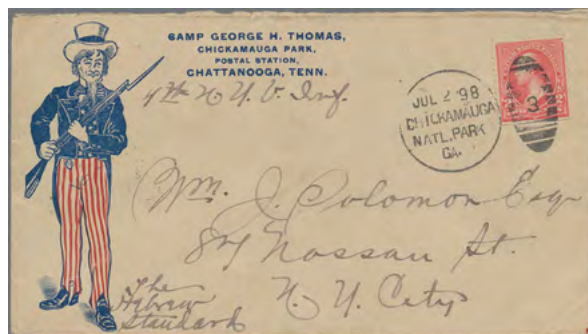 CAMP GEORGE H. THOMAS,
CHICKAMAUGA PARK,
POSTAL STATION,
CHATTANOOGA, TENN.
N. Y. V. Inf.
JUL 2 '98
CHICKAMAUGA
NATL. PARK
GA.
3
Wm. J. Solomon Esq
Nassau St.
N. Y. City
The
Hebrew
Standard